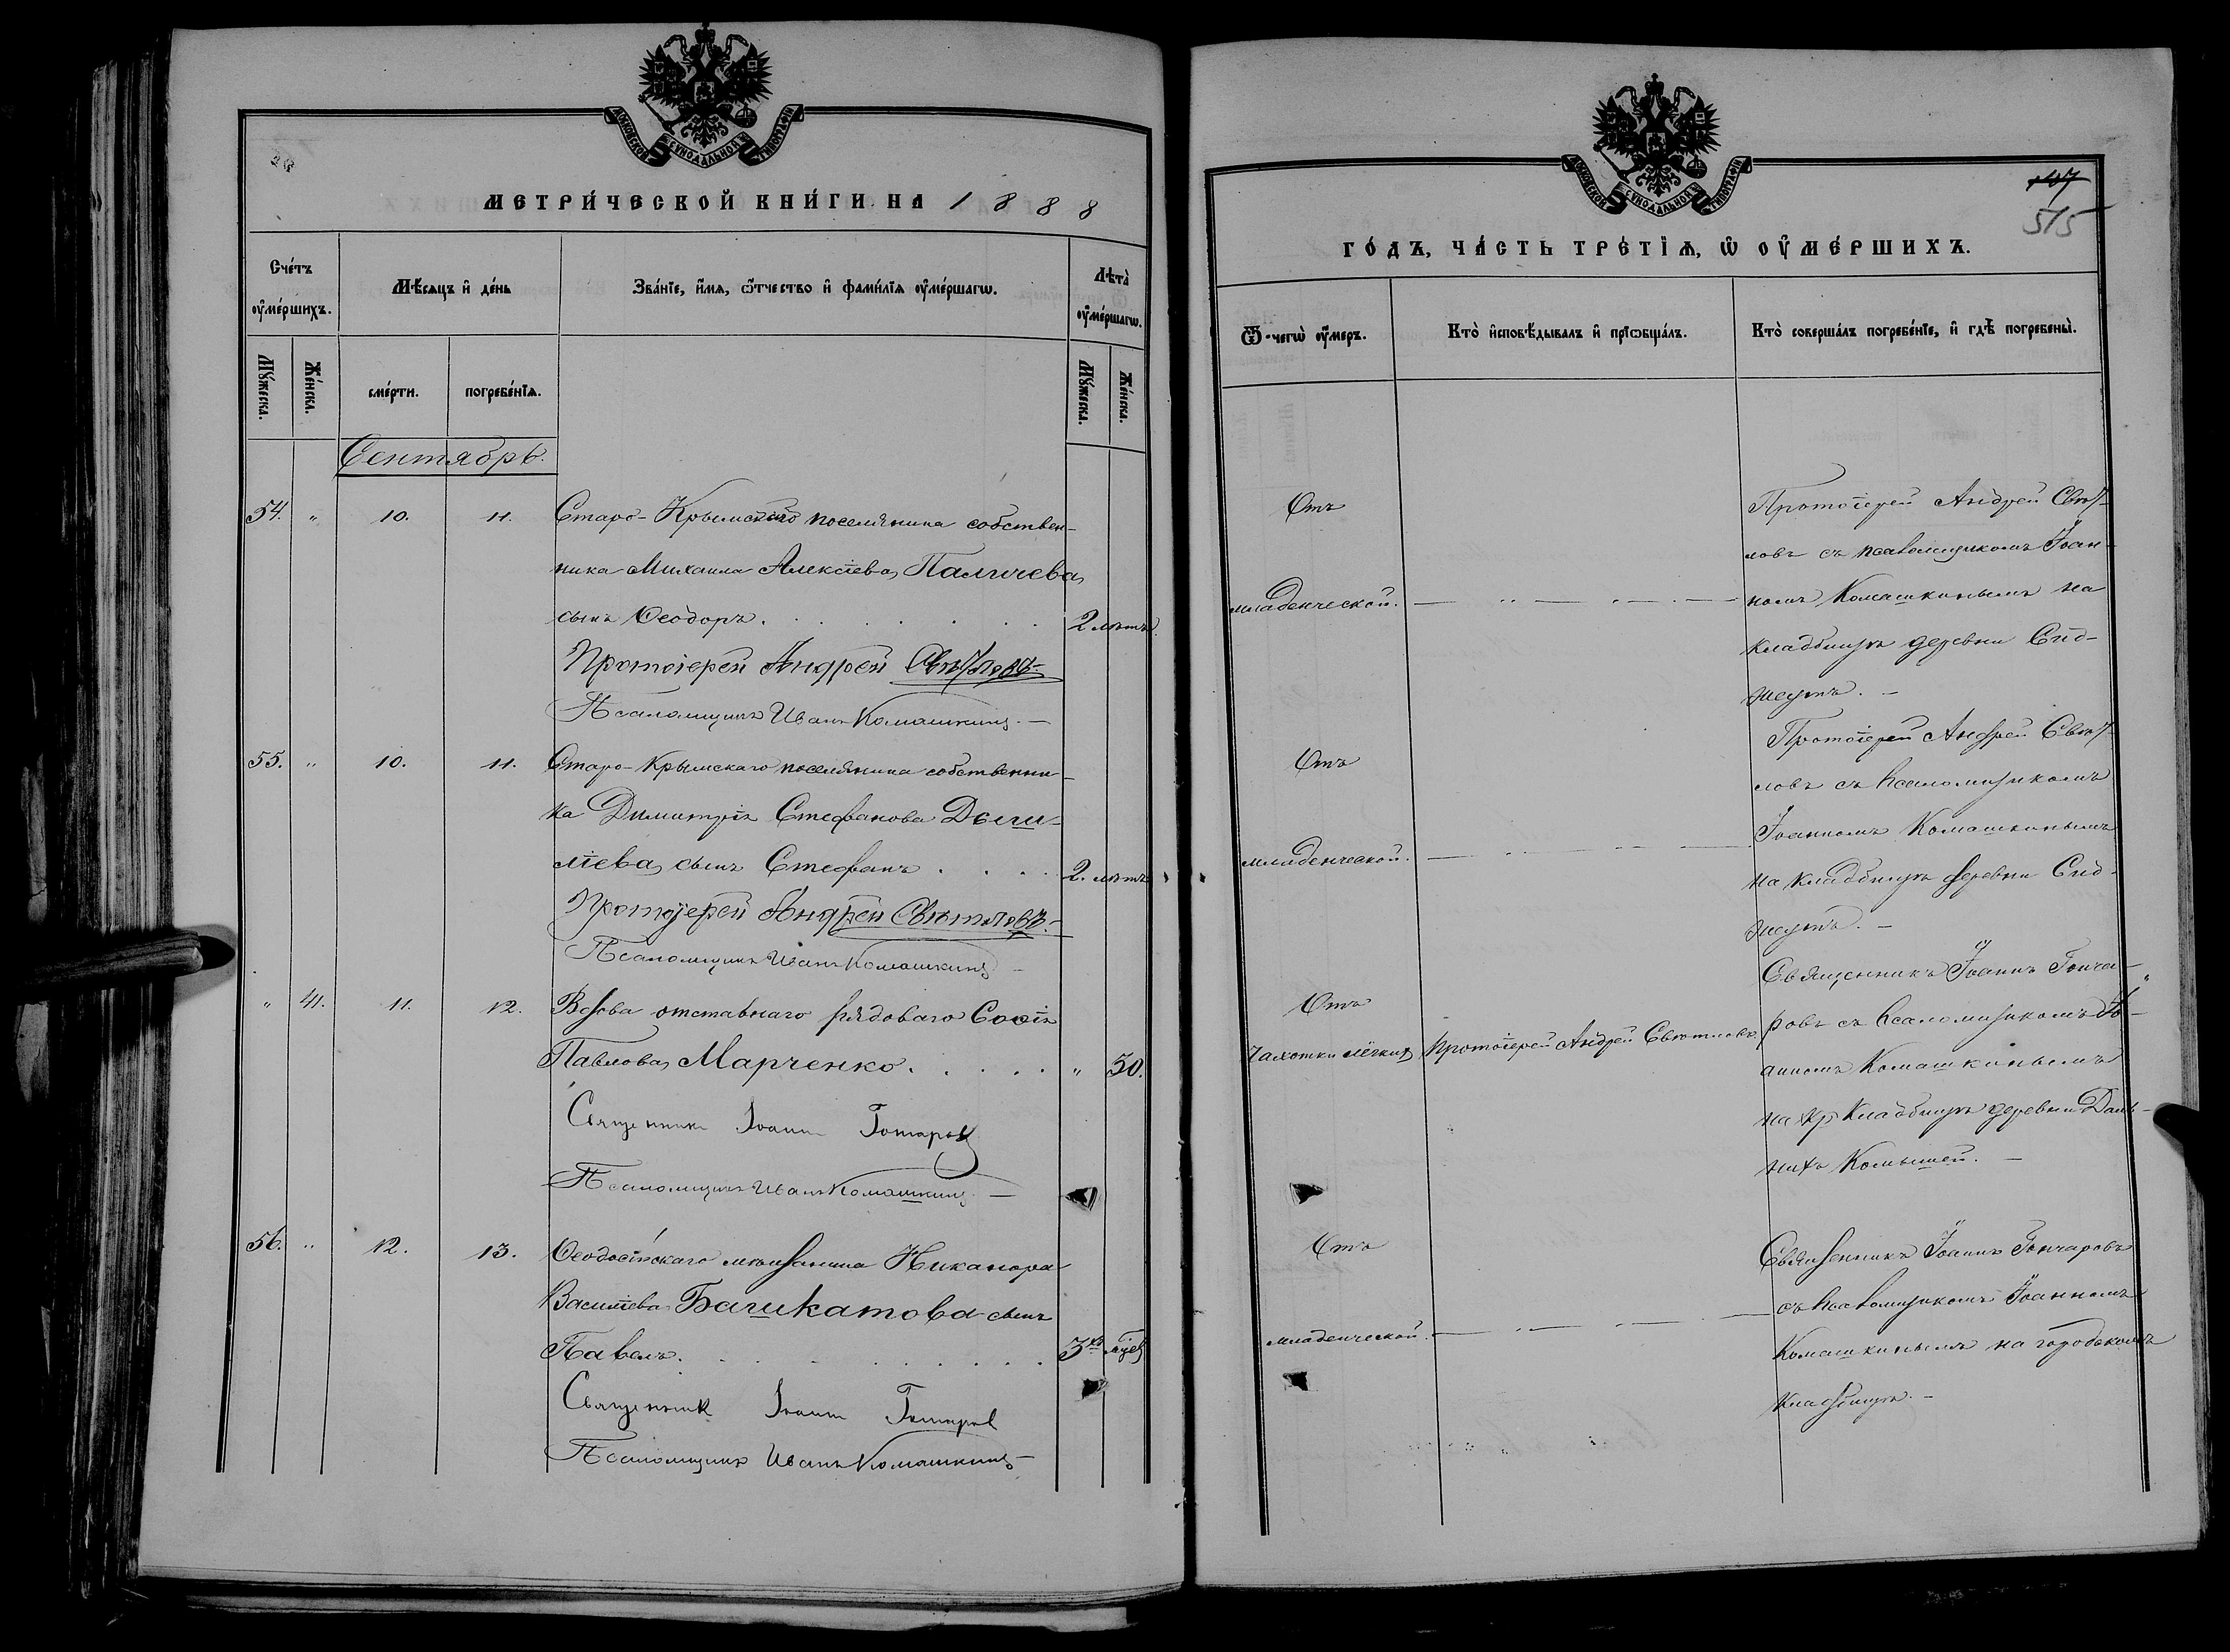 МОСКОВСКОЙ СУНОДАЛЬНОЙ ТИПОГРАФІИ
МЕТРИ́ЧЕСКОЙ КНИ́ГИ НА 1888
Сче́тъ ᲂу҆ме́ршихъ.
Мѣ́сяцъ и҆ де́нь
Зва́нїе, и҆́мя, ѻ҆́тчество и҆ фами́лїя ᲂу҆ме́ршагѡ.
Лѣ́та ᲂу҆ме́ршагѡ.
Му́жеска.
Же́нска.
сме́рти.
погребе́нїя.
Му́жеска.
Же́нска.
Сентябрь.
54. " 10. 11. Старо-Крымскаго поселянина собствен-
ника Михаила Алексѣева Паличева
сынъ Ѳеодоръ. 2 лѣтъ.
Протоіерей Андрей Свѣтловъ
Псаломщикъ Иванъ Комашкинъ. —
55. " 10. 11. Старо-Крымскаго поселянина собственни-
ка Димитрія Стефанова
сынъ Стефанъ . . . . 2. лѣтъ
Протоіерей Андрей Свѣтловъ.
Псаломщикъ Иванъ Комашкинъ —
" 41. 11. 12. Вдова отставнаго рядоваго Софія
Павлова Марченко. . . . . . " 50.
Священникъ Іоаннъ Гончаровъ
Псаломщикъ Иванъ Комашкинъ. —
56. " 12. 13. Ѳеодосійскаго мѣщанина Никанора
Василіева Башкатова сынъ
Павелъ. 3хъ
Священник Іоанн Гончаров
Псаломщикъ Иванъ Комашкинъ —
МОСКОВСКОЙ СУНОДАЛЬНОЙ ТИПОГРАФІИ
515
ГО́ДЪ, ЧА́СТЬ ТРЕ́ТЇЯ, Ѡ҆ ᲂУ҆МЕ́РШИХЪ.
Ѿ чегѡ̀ ᲂу҆́меръ.
Кто̀ и҆сповѣ́дывалъ и҆ прїѡбща́лъ.
Кто̀ соверша́лъ погребе́нїе, и҆ гдѣ̀ погребены̀.
Отъ
младенческой.
Протоіерей Андрей Свѣт-
ловъ съ псаломщикомъ Іоан-
номъ Комашкинымъ на
кладбищѣ деревни Сид-
жеутъ. —
Отъ
младенческой.
Протоіерей Андрей Свѣт-
ловъ съ псаломщикомъ
Іоанномъ Комашкинымъ
на кладбищѣ деревни Сид-
жеутъ. —
Отъ
чахотки лёгкихъ
Протоіерей Андрей Свѣтловъ
Священникъ Іоаннъ Гонча-
ровъ съ псаломщикомъ Іо-
анномъ Комашкинымъ
на кладбищѣ деревни Даль-
нихъ Комышей. —
Отъ
младенческой.
Священникъ Іоаннъ Гончаровъ
съ псаломщикомъ Іоанномъ
Комашкинымъ на городскомъ
кладбищѣ. —